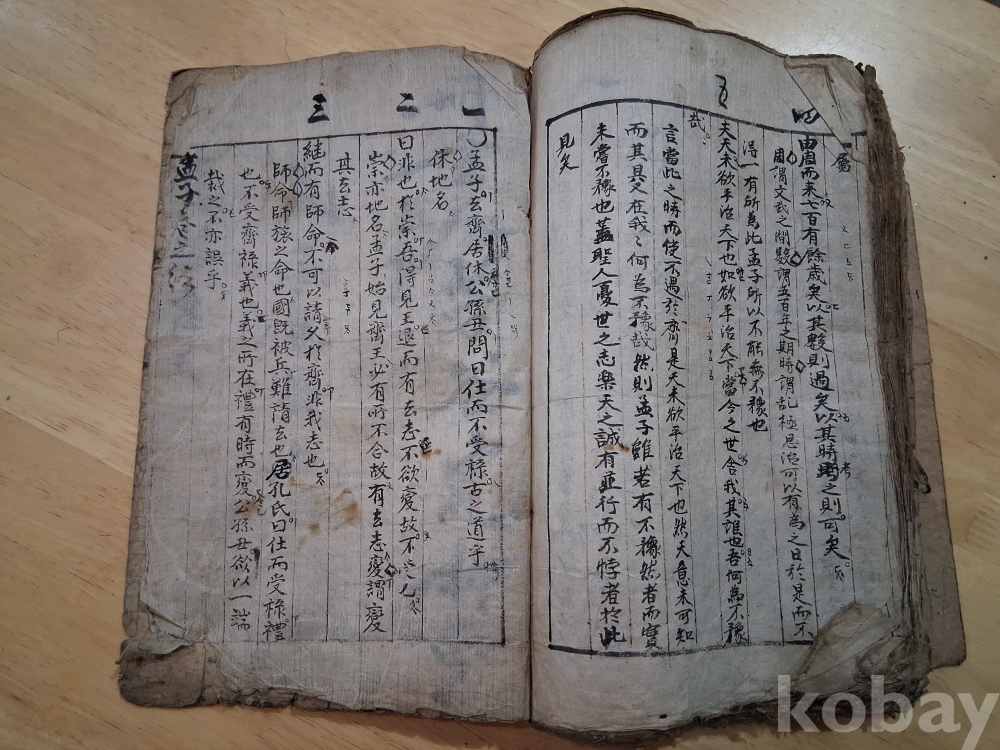 四
由周而来七百有餘歲矣以其數則過矣以其時考之則可矣
周謂文武之間數謂五百年之期時謂乱極思治可以有為之日於是而不
得一有所為此孟子所以不能無不豫也
五
夫天未欲平治天下也如欲平治天下當今之世舍我其誰也吾何為不豫
哉
言當此之時而使不遇於齊是天未欲平治天下也然天意未可知
而其具又在我〻何為不豫哉然則孟子雖若有不豫然者而實
未嘗不豫也蓋聖人憂世之志楽天之誠有並行而不悖者於此
見矣
一
○孟子去齊居休公孫丑問曰仕而不受祿古之道乎
休地名
二
曰非也於崇吾得見王退而有去志不欲變故不受也
崇亦地名孟子始見齊王必有所不合故有去志變謂變
其去志
三
継而有師命不可以請久於齊非我志也
師命師旅之命也國旣被兵難請去也孔氏曰仕而受祿禮
也不受齊祿義也義之所在禮有時而變公孫丑欲以一端
裁之不亦誤乎
孟子卷之
kobay